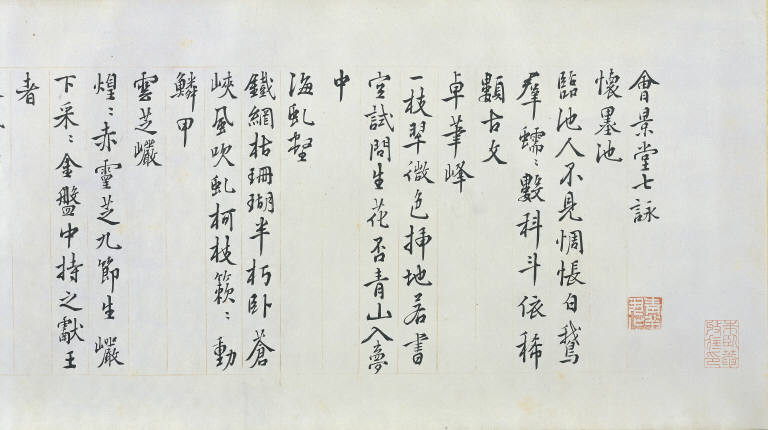 會景堂七詠
懷墨池
臨池人不見惆悵白鵝
羣蠕〻數科斗依稀
類古文
卓筆峰
一枝翠微色插地若書
空試問生花否青山入夢
中
海虬壑
鐵網枯珊瑚半朽臥蒼
峽風吹虬柯枝簌〻動
鱗甲
雲芝巖
煌〻赤靈芝九節生巖
下采〻金盤中持之獻王
者